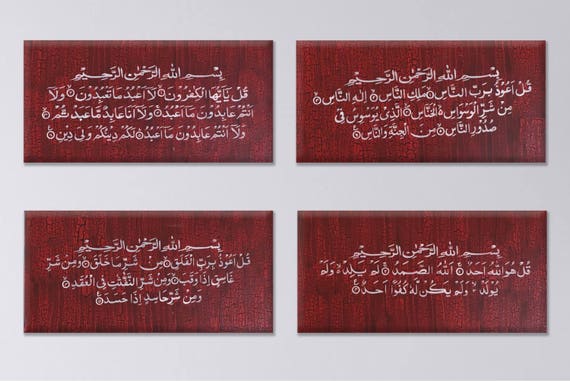 بِسْمِ اللهِ الرَّحْمٰنِ الرَّحِيْمِ
قُلْ يٰٓاَيُّهَا الْكٰفِرُوْنَ۝ لَآ اَعْبُدُ مَا تَعْبُدُوْنَ۝ وَلَآ
اَنْتُمْ عَابِدُوْنَ مَآ اَعْبُدُ۝ وَلَآ اَنَا عَابِدٌ مَّا عَبَدْتُّمْ۝
وَلَآ اَنْتُمْ عَابِدُوْنَ مَآ اَعْبُدُ۝ لَكُمْ دِيْنُكُمْ وَلِيَ دِيْنِ۝
بِسْمِ اللهِ الرَّحْمٰنِ الرَّحِيْمِ
قُلْ اَعُوْذُ بِرَبِّ النَّاسِ۝ مَلِكِ النَّاسِ۝ اِلٰهِ النَّاسِ۝
مِنْ شَرِّ الْوَسْوَاسِ الْخَنَّاسِ۝ الَّذِيْ يُوَسْوِسُ فِيْ
صُدُوْرِ النَّاسِ۝ مِنَ الْجِنَّةِ وَالنَّاسِ۝
بِسْمِ اللهِ الرَّحْمٰنِ الرَّحِيْمِ
قُلْ اَعُوْذُ بِرَبِّ الْفَلَقِ۝ مِنْ شَرِّ مَا خَلَقَ۝ وَمِنْ شَرِّ
غَاسِقٍ اِذَا وَقَبَ۝ وَمِنْ شَرِّ النَّفّٰثٰتِ فِي الْعُقَدِ۝
وَمِنْ شَرِّ حَاسِدٍ اِذَا حَسَدَ۝
بِسْمِ اللهِ الرَّحْمٰنِ الرَّحِيْمِ
قُلْ هُوَ اللهُ اَحَدٌ۝ اَللهُ الصَّمَدُ۝ لَمْ يَلِدْ وَلَمْ
يُوْلَدْ۝ وَلَمْ يَكُنْ لَّهٗ كُفُوًا اَحَدٌ۝